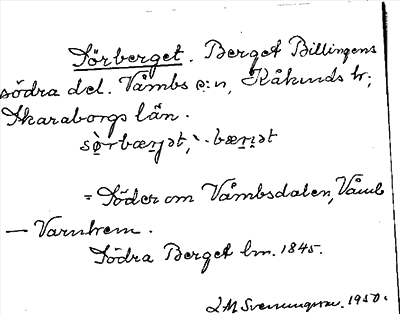 Sörberget. Berget Billingens
södra del. Våmbs s:n, Kåkinds hr;
Skaraborgs län.
sö̀rbærjət, `-bærjət
= Söder om Våmbsdalen, Våmb
— Varnhem.
Södra Berget lm. 1845.
L M Svenungsson. 1950.